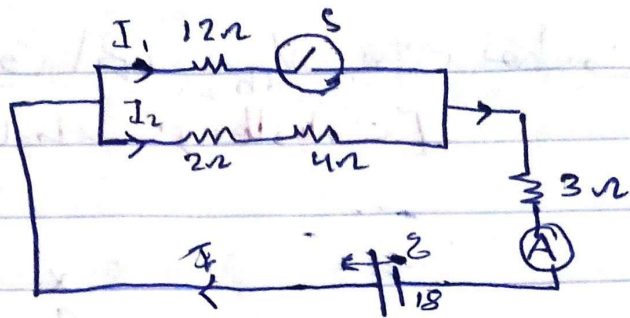 I₁ 12Ω S
I₂
2Ω 4Ω
3Ω
A
I
18